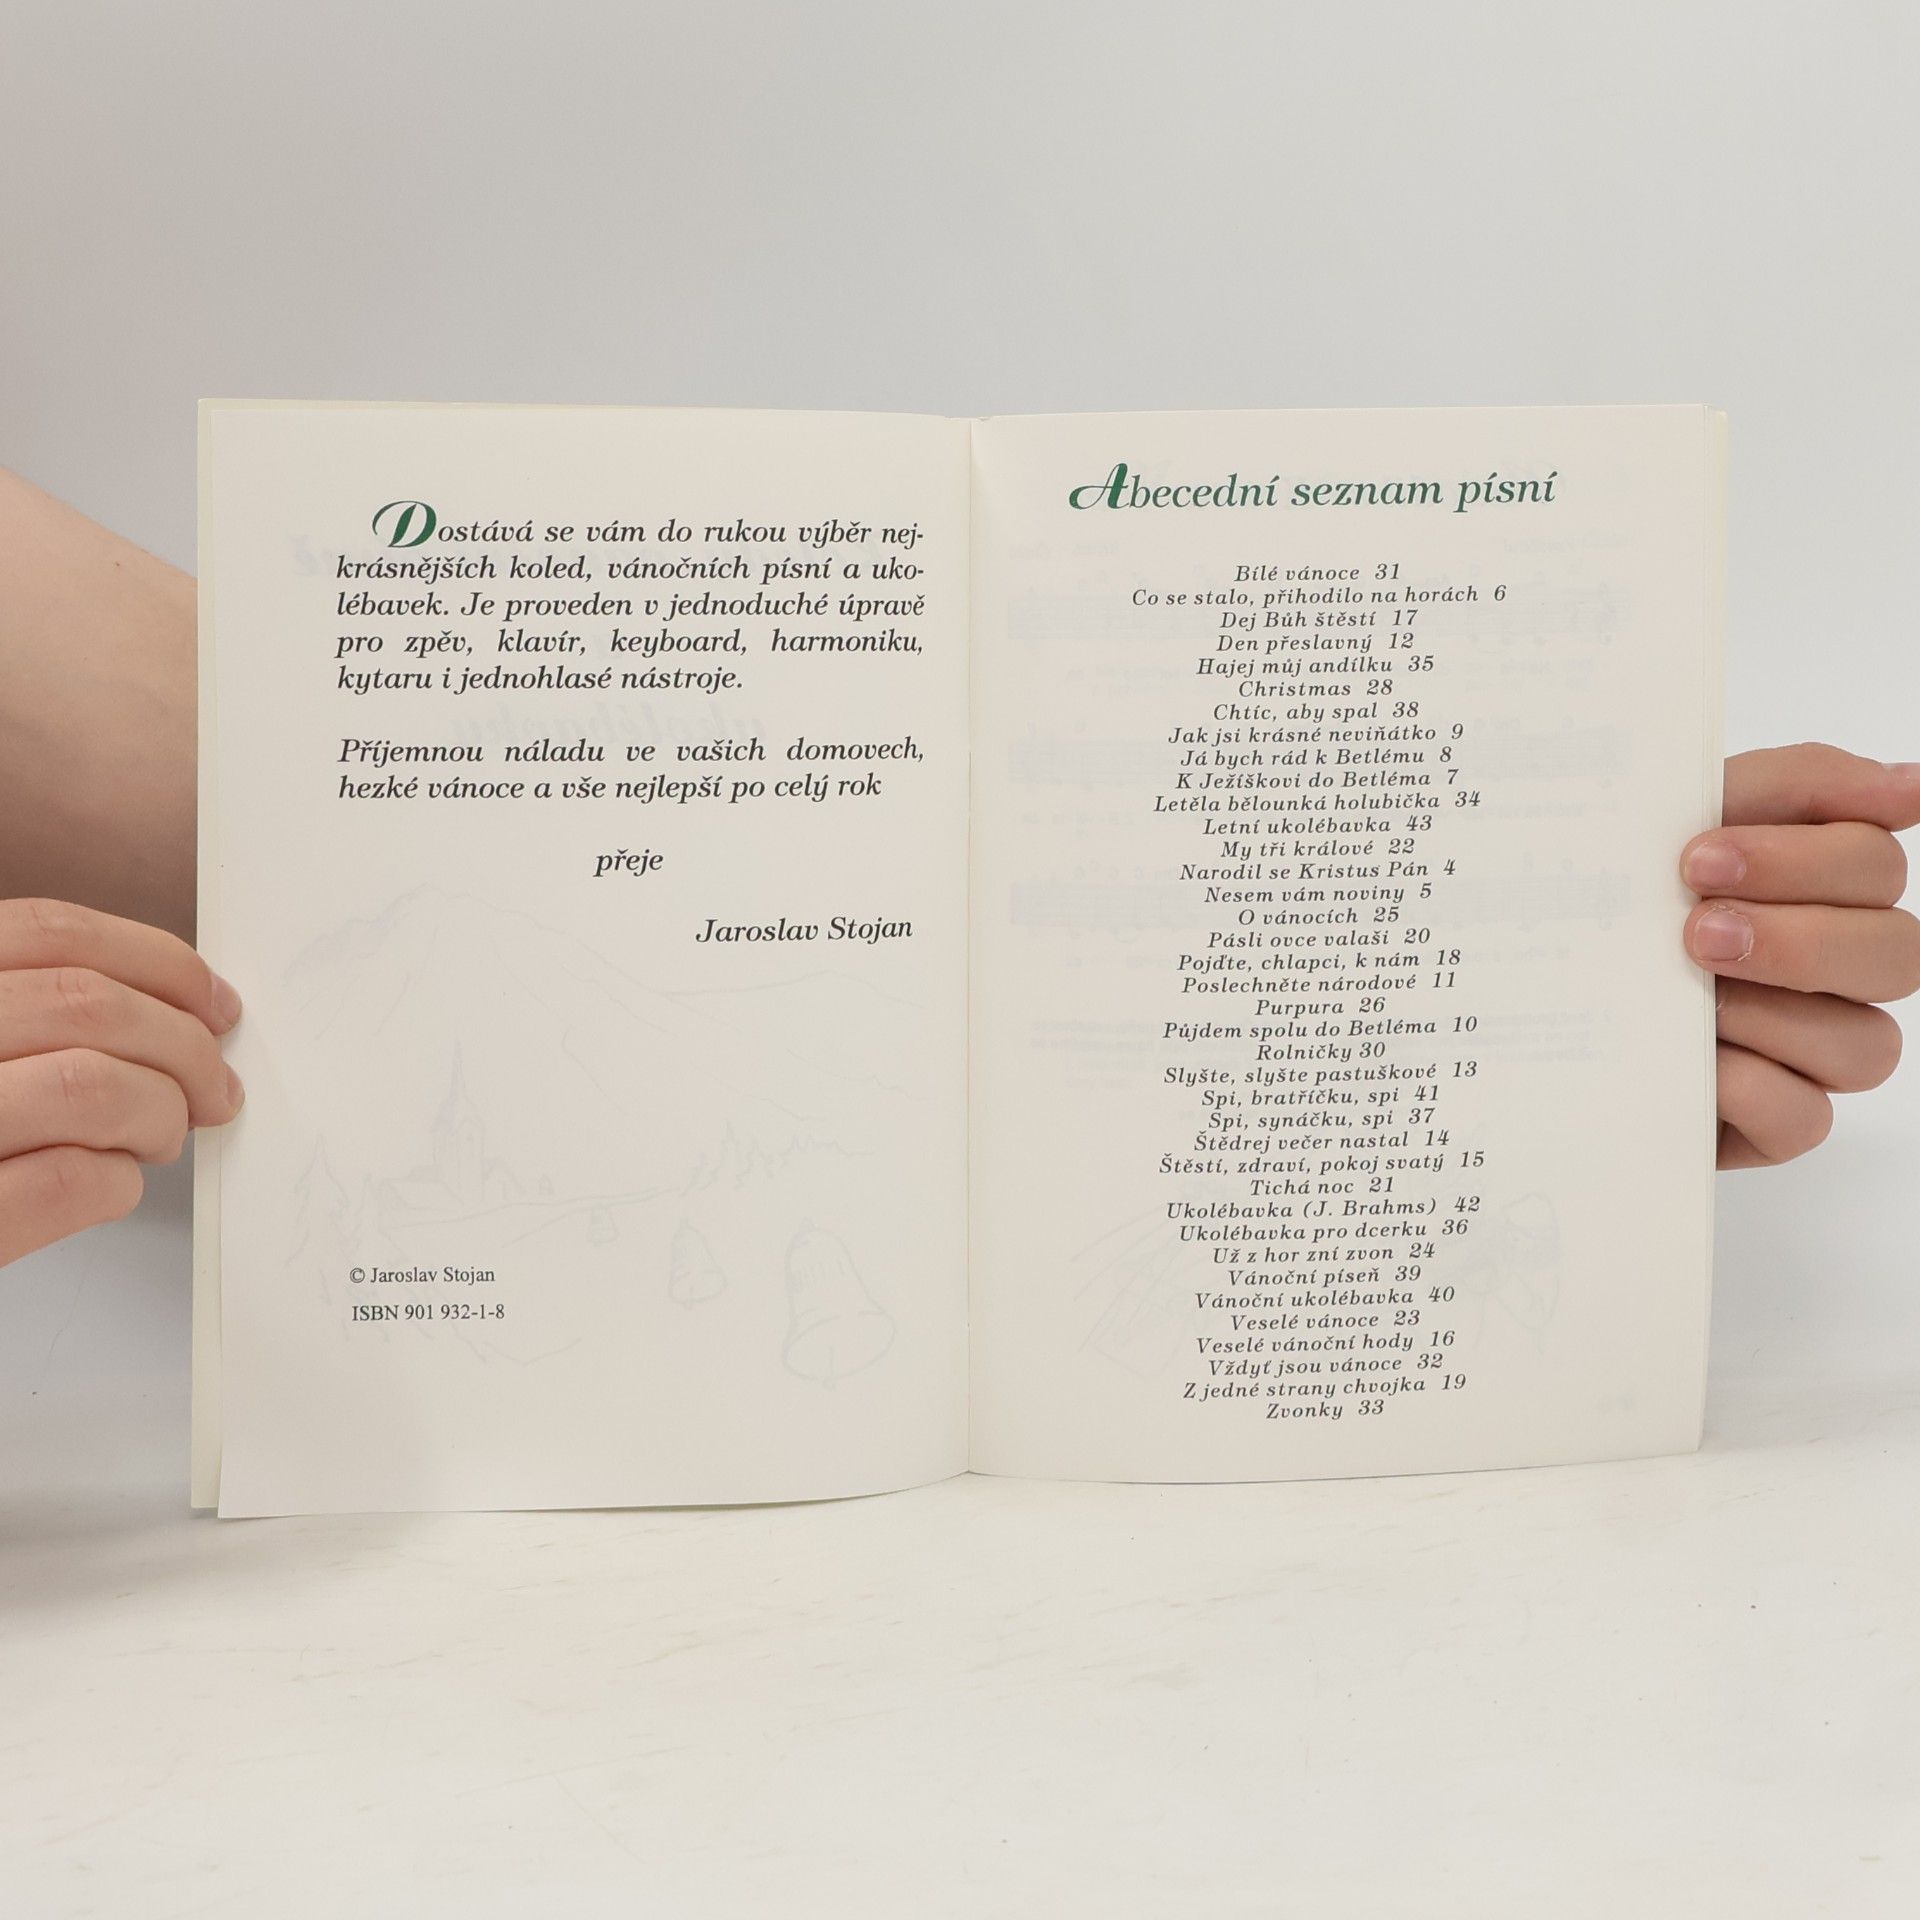 Dostává se vám do rukou výběr nej-
krásnějších koled, vánočních písní a uko-
lébavek. Je proveden v jednoduché úpravě
pro zpěv, klavír, keyboard, harmoniku,
kytaru i jednohlasé nástroje.
Příjemnou náladu ve vašich domovech,
hezké vánoce a vše nejlepší po celý rok
přeje
Jaroslav Stojan
© Jaroslav Stojan
ISBN 901 932-1-8
Abecední seznam písní
Bílé vánoce 31
Co se stalo, přihodilo na horách 6
Dej Bůh štěstí 17
Den přeslavný 12
Hajej můj andílku 35
Christmas 28
Chtíc, aby spal 38
Jak jsi krásné neviňátko 9
Já bych rád k Betlému 8
K Ježíškovi do Betléma 7
Letěla bělounká holubička 34
Letní ukolébavka 43
My tři králové 22
Narodil se Kristus Pán 4
Nesem vám noviny 5
O vánocích 25
Pásli ovce valaši 20
Pojďte, chlapci, k nám 18
Poslechněte národové 11
Purpura 26
Půjdem spolu do Betléma 10
Rolničky 30
Slyšte, slyšte pastuškové 13
Spi, bratříčku, spi 41
Spi, synáčku, spi 37
Štědrej večer nastal 14
Štěstí, zdraví, pokoj svatý 15
Tichá noc 21
Ukolébavka (J. Brahms) 42
Ukolébavka pro dcerku 36
Už z hor zní zvon 24
Vánoční píseň 39
Vánoční ukolébavka 40
Veselé vánoce 23
Veselé vánoční hody 16
Vždyť jsou vánoce 32
Z jedné strany chvojka 19
Zvonky 33